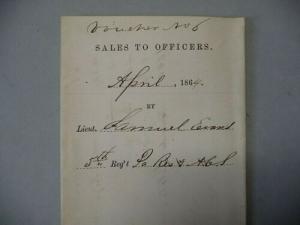 Voucher No 6
SALES TO OFFICERS.
April, 1864.
BY
Lieut. Samuel Evans
5th Reg't Pa Res & A.C.S